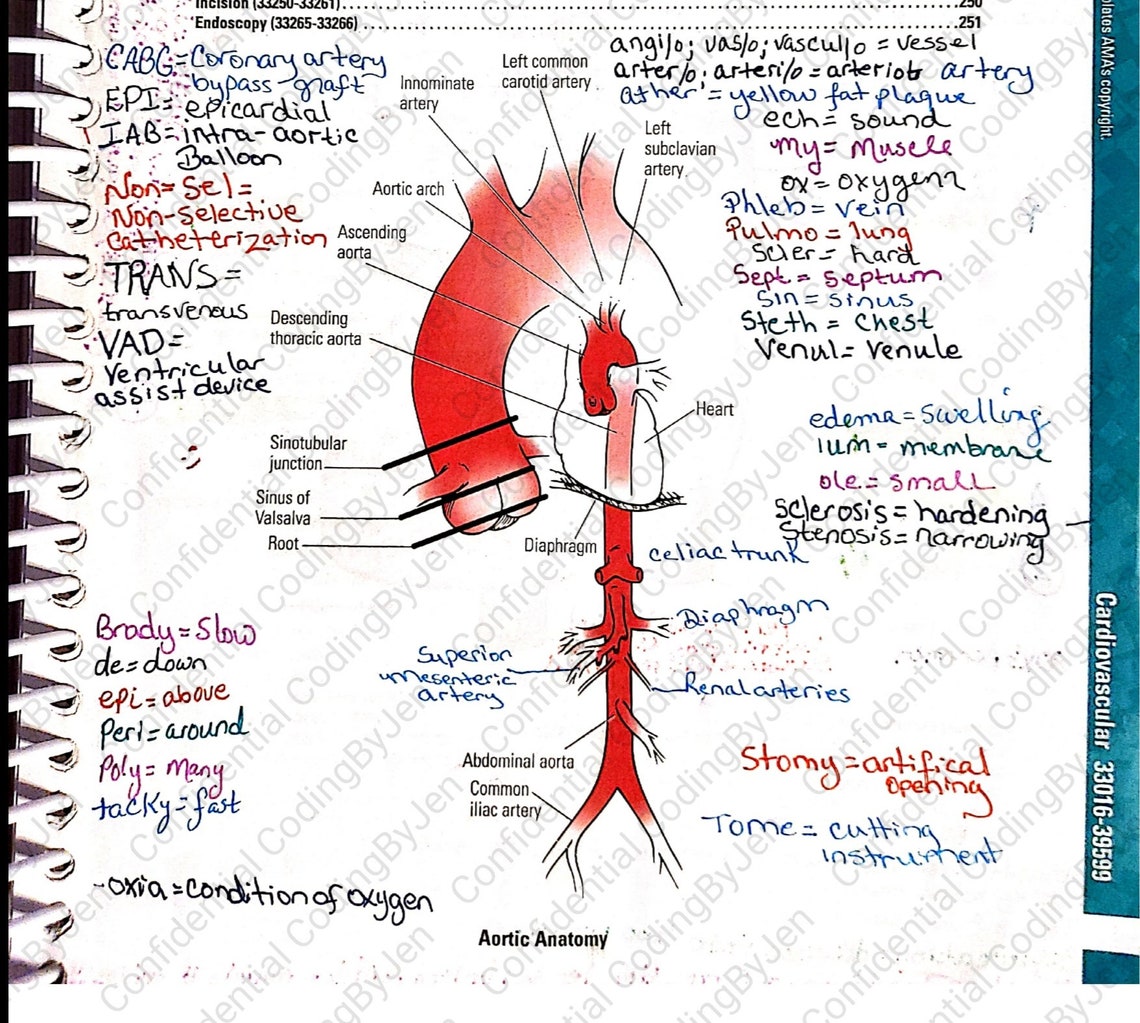 Incision (33250-33261) 250
Endoscopy (33265-33266) 251
CABG=Coronary artery
bypass graft
EPI= epicardial
IAB=intra-aortic
Balloon
Non=Sel=
Non-selective
Catheterization
TRANS=
transvenous
VAD=
Ventricular
assist device
angi/o; vas/o; vascul/o = vessel
arter/o; arteri/o = arteriot artery
ather = yellow fat plaque
ech= sound
my= Muscle
ox = oxygen
Phleb= vein
Pulmo = lung
Scler= hard
Sept= septum
Sin = sinus
Steth = chest
Venul= venule
edema=Swelling
ium = membrane
ole= small
Sclerosis = hardening
Stenosis=narrowing
Innominate
artery
Left common
carotid artery
Left
subclavian
artery
Aortic arch
Ascending
aorta
Descending
thoracic aorta
Sinotubular
junction
Sinus of
Valsalva
Root
Heart
Diaphragm
celiac trunk
Diaphragm
Superior
mesenteric
artery
Renal arteries
Abdominal aorta
Common
iliac artery
Brady=Slow
de=down
epi=above
Peri=around
Poly= Many
tacky=fast
-oxia=condition of oxygen
Stomy=artifical
opening
Tome= cutting
instrument
Aortic Anatomy
AMA's copyright.
Cardiovascular 33016-39599
Confidential CodingByJen